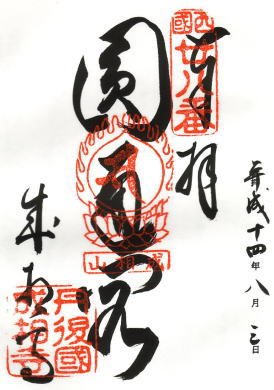 奉拝
西國
廿八番
圓通閣
成相山
成相寺
丹後國
成相寺
平成十四年八月三日